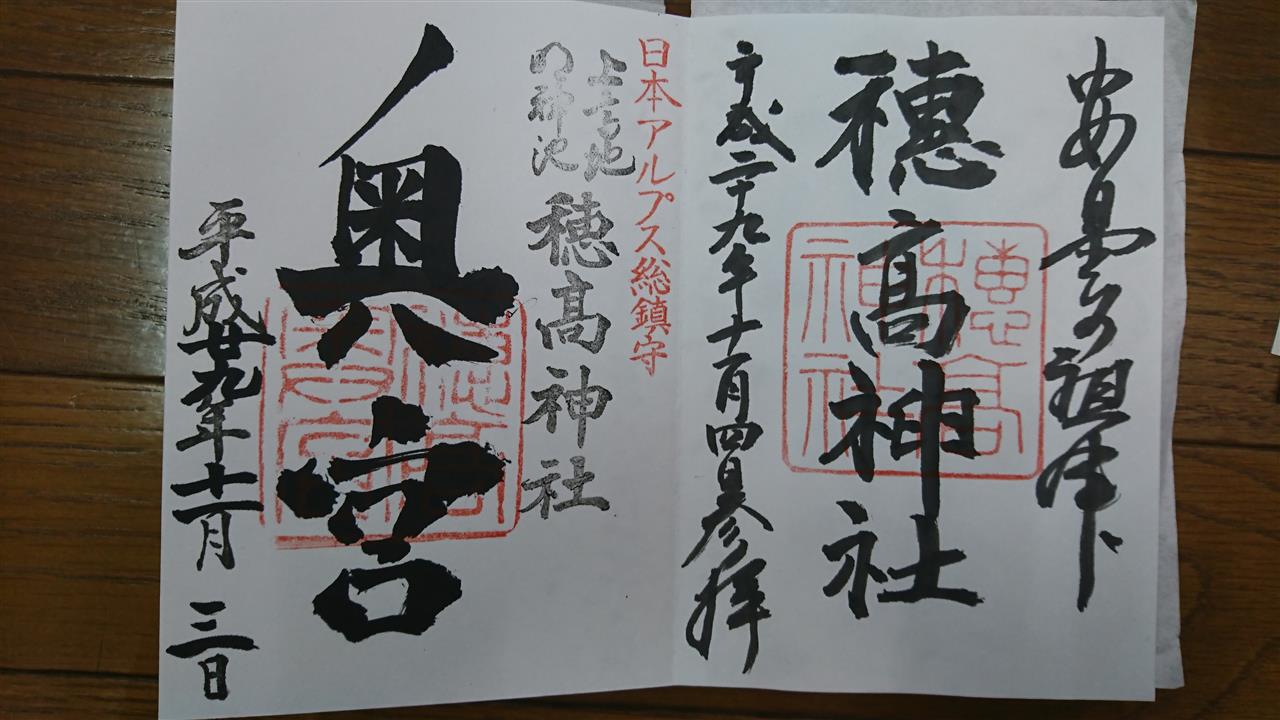 安曇乃祖神
穗髙神社
穗高
神社
平成二十九年十一月四日参拝
日本アルプス総鎮守
上高地
明神池
穂髙神社
奥宮
平成廿九年十一月三日